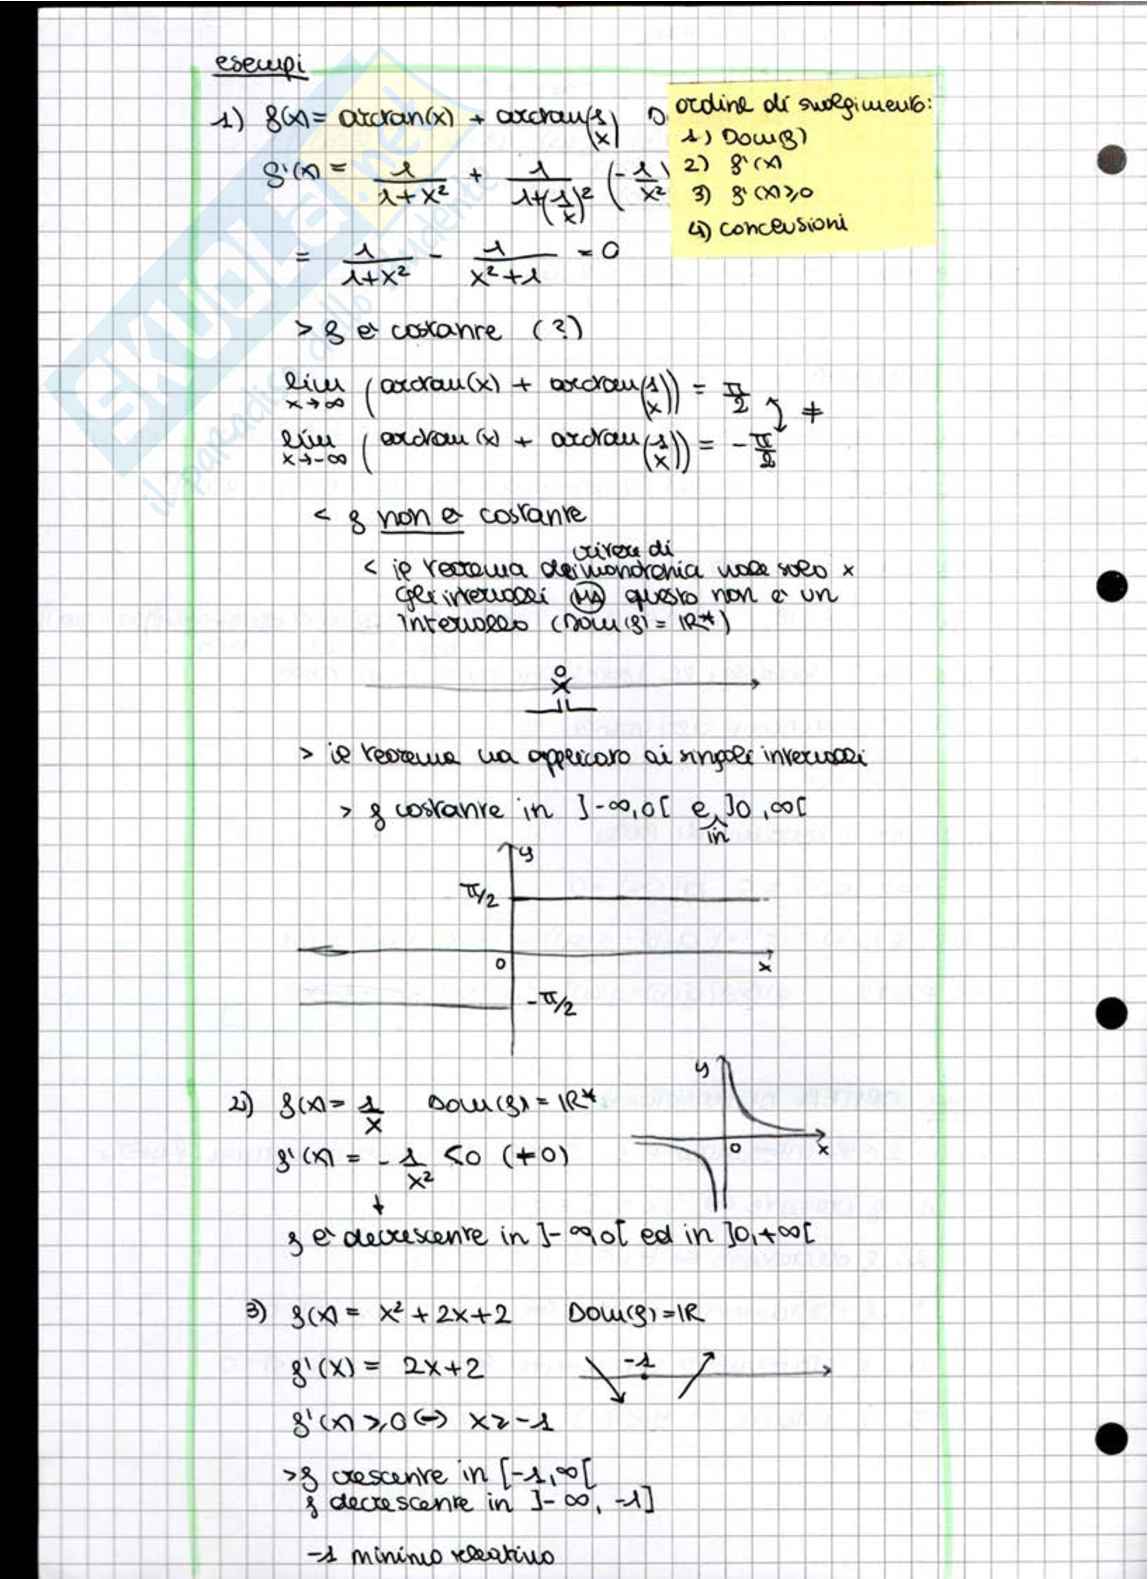 esempi
1) f(x) = arctan(x) + arctan(1/x) D
ordine di svolgimento:
1) Dom(f)
2) f'(x)
3) f'(x) ≥ 0
4) conclusioni
f'(x) = 1/(1+x²) + 1/(1+(1/x)²) (-1/x²)
= 1/(1+x²) - 1/(x²+1) = 0
> f è costante (?)
lim x→∞ (arctan(x) + arctan(1/x)) = π/2
≠
lim x→-∞ (arctan(x) + arctan(1/x)) = -π/2
< f non è costante
< il teorema criteri di monotonia vale solo x
gli intervalli MA questo non è un
intervallo (Dom(f) = IR*)
0
> il teorema va applicato ai singoli intervalli
> f costante in ]-∞,0[ e in ]0,∞[
y
π/2
0
x
-π/2
2) f(x) = 1/x Dom(f) = IR*
y
0
x
f'(x) = -1/x² <0 (≠0)
f è decrescente in ]-∞,0[ ed in ]0,+∞[
3) f(x) = x² + 2x + 2 Dom(f) = IR
f'(x) = 2x+2
-1
f'(x) ≥ 0 ↔ x ≥ -1
> f crescente in [-1,∞[
f decrescente in ]-∞, -1]
-1 minimo relativo
SKUOLA.net
il paradiso dello studente